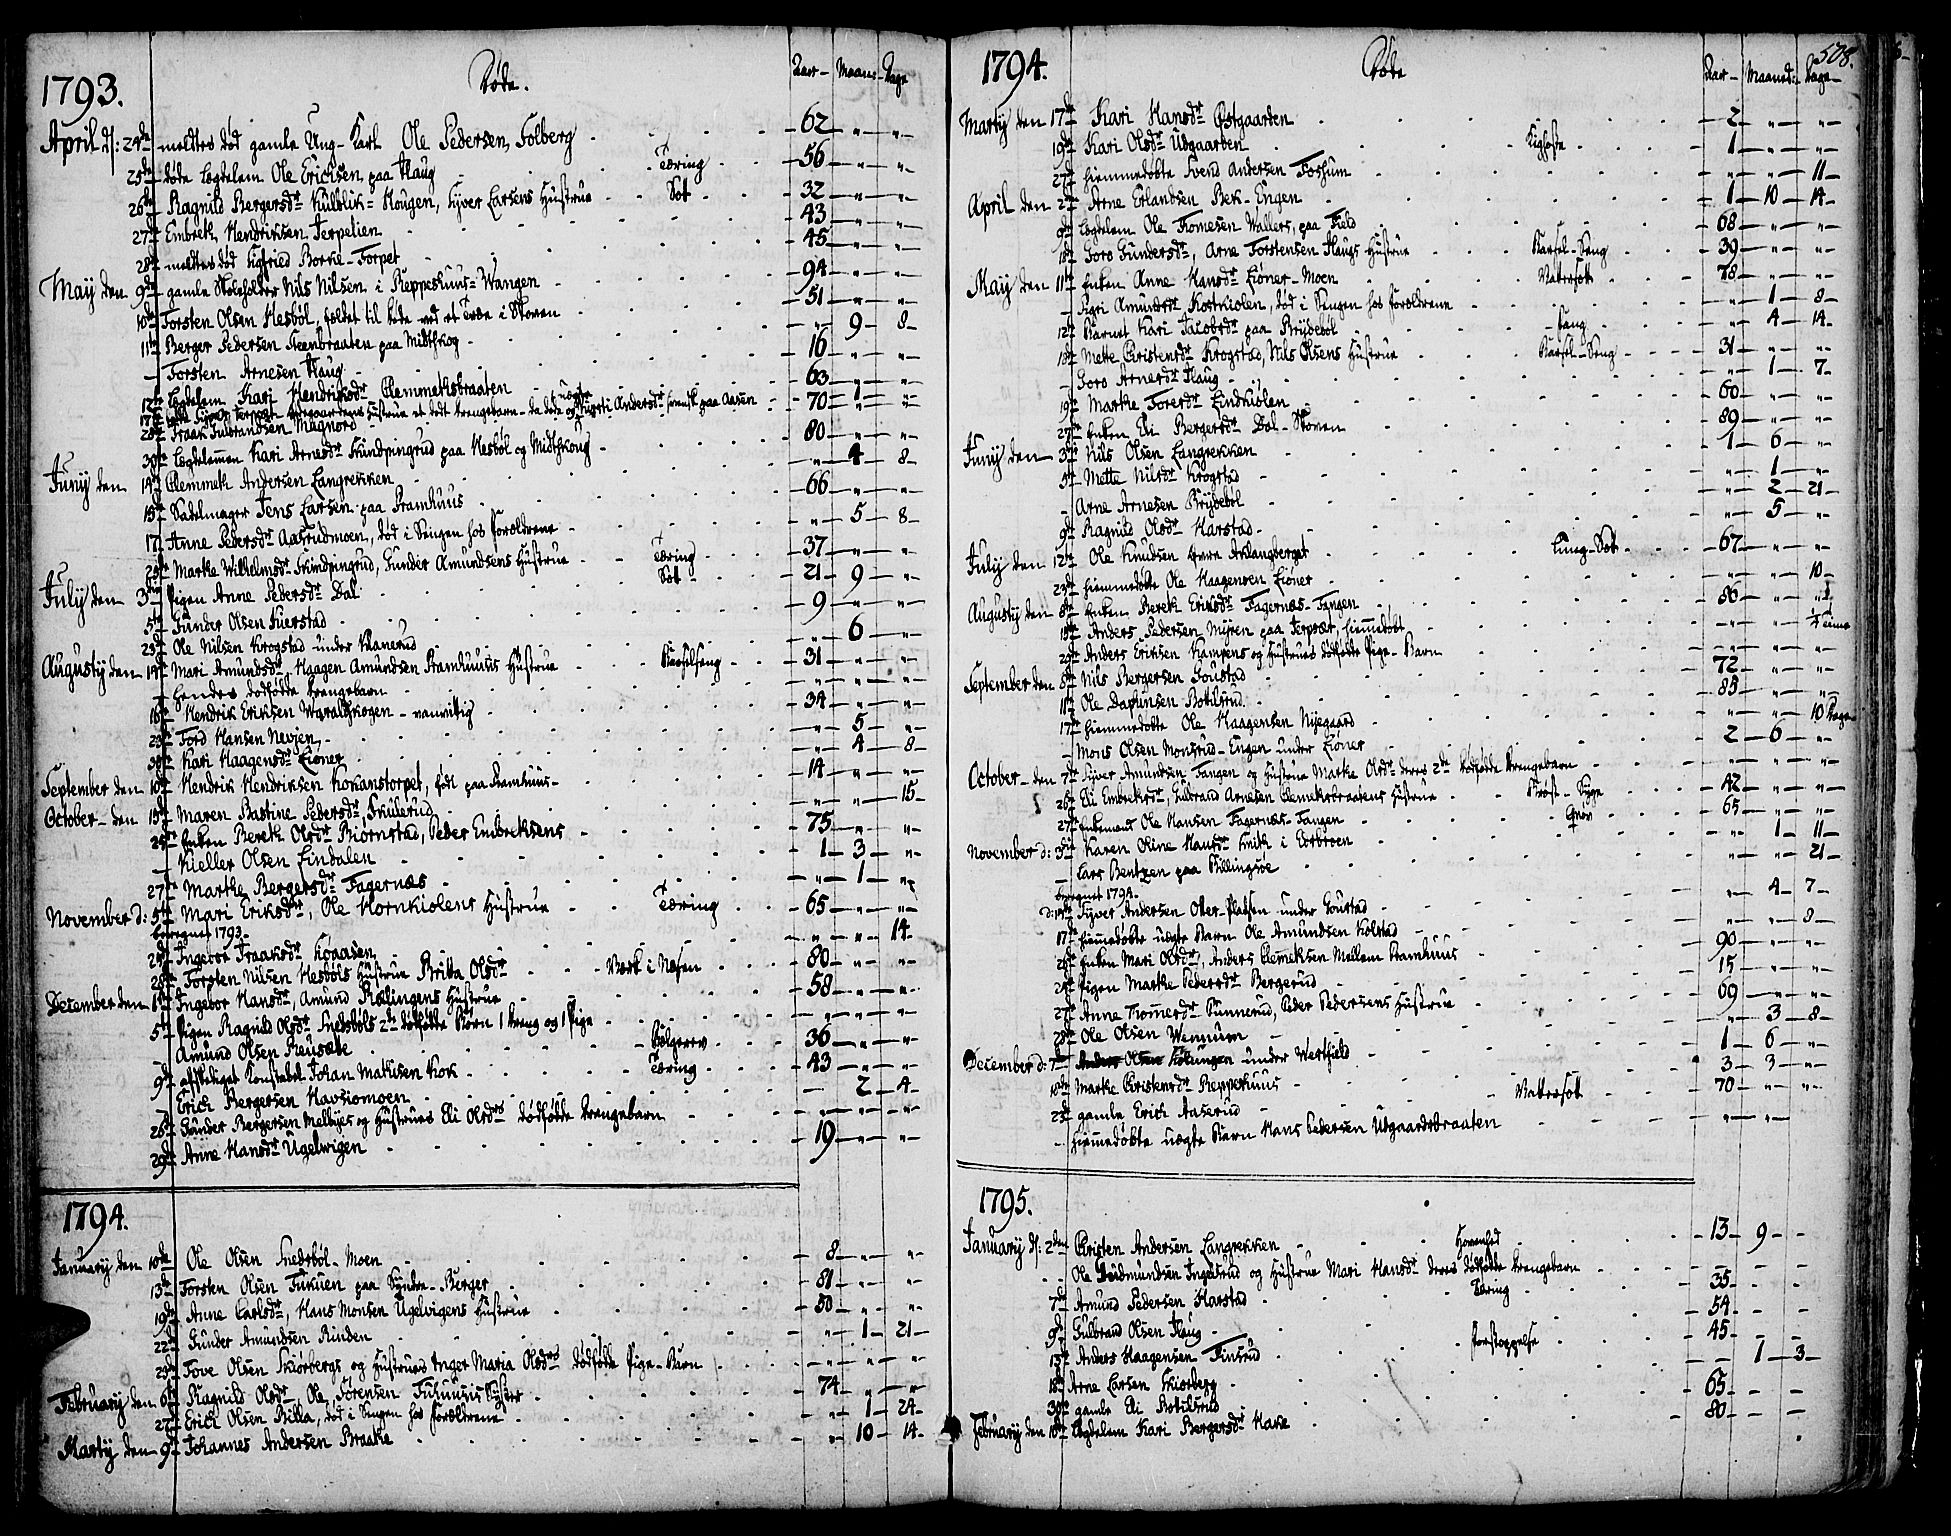 1793. Døde. Aar- Maans- Dage
April d: 24de meldtes død gamle Ung-Karl Ole Pedersen, Solberg - 62 - " - "
25de døde Lægdelem Ole Erichsen paa Haug - Tæring - 56 - " - "
26de Ragnild Bergersdr Kulblik-Hougen, Syver Larsens Hustrue - Sot - 32 - " - "
27de Embrek Hendriksen Terpelien - 43 - " - "
28de meldtes død Sigfried Borke-Torpet - 45 - " - "
May den 9de gamle Skoleholder Nils Nilsen i Reppeshuus-Wangen - 94 - " - "
10de Torsten Olsen Hesbøl, - til døde ved et Træe i Skoven - 51 - " - "
11te Berger Pedersen Steenbraaten paa Midtskog - " - 9 - 8 -
- Torsten Arnesen Haug - 16 - " - "
12te Lægdelem Kari Hendriksdr Klemmetsbraaten - 63 - " - "
17de Hustrue et dødt Drengebarn - Kirsti Andersdr Svensk paa Aasen - 70 - " - "
28de Traak Gulbrandsen Magnord - " - 1 - "
30te Lægdelemmen Kari Arnesdr Skindpingrud paa Hesbøl og Midtskoug - 80 - " - "
Juny den 14de Klemmeth Andersen Langrekken - " - 4 - 8 -
15de Sadelmager Jens Larsen paa Kramhuus - 66 - " - "
17de Anne Pedersdr Aaserudmoen, død i Sengen hos Forældrene - " - 5 - 8 -
29de Marthe Wilhelmsdr Skindpingrud, Gunder Amundsens Hustrue - Tæring - 37 - " - "
July den 3die Pigen Anne Pedersdr Dal - Sot - 21 - 9 - "
5te Gunder Olsen Suerstad - 9 - " - "
23de Ole Nilsen Krogstad under Klanerud - " - 6 - "
Augusty den 14de Mari Amundsdr, Haagen Amundsen Kramhuuss Hustrue - Barselseng - 31 - " - "
- hendes dødfødde Drengebarn - " - " - "
18de Hendrik Eriksen Waraldskogen - vanvittig - 34 - " - "
23de Tord Hansen Nevjen - " - 5 - "
30te Kari Haagensdr Lioner - " - 4 - 8 -
September den 10de Hendrik Hendriksen Kokanstorpet, født paa Kramhuus - 14 - " - "
October den 13de Maren Bastine Pedersdr Skulerud - " - " - 15 -
25de Enken Berek Olsdr Biørnstad, Peder Embreksens - 75 - " - "
- Kieller Olsen Lindalen - 1 - 3 - "
27de Marthe Bergersdr Fagernæs - " - 1 - "
November d: 5te Mari Eriksdr, Ole Hornkiølens Hustrue - Tæring - 65 - " - "
beregnet 1793.
24de Ingebor Traaksdr Loaasen - " - " - 14 -
28de Torsten Nilsen Hesbøls Hustrue Britta Olsdr - Værk i Næsen - 80 - " - "
December den 1ste Ingebor Hansdr, Amund Rælingens Hustrue - 58 - " - "
5te Pigen Ragnild Olsdr Snedsbøls 2de dødfødde Børn 1 Dreng og 1 Pige - " - " - "
- Amund Olsen Reusæte - 36 - " - "
9de afskediget Konstabel Johan Mathisen Kok - Tæring - 43 - " - "
- Erich Bergersen Havsiomoen - " - 2 - 4 -
26de Gunder Bergersen Melbyes og Hustrues Eli Olsdrs dødfødde Drengebarn - " - " - "
29de Anne Hansdr Ugelwigen - 19 - " - "
1794.
January den 10de Ole Olsen Snedsbøl-Moen - 8 - " - "
13de Torsten Olsen Tukuen paa Syndre-Berger - 81 - " - "
19de Anne Carlsdr, Hans Monsen Ugelvigens Hustrue - 50 - " - "
22de Gunder Amundsen Rinden - " - 1 - 21 -
29de Tove Olsen Skiørbergs og Hustrues Inger Maria Olsdrs dødfødde Pige-Barn - " - " - "
February den 6te Ragnild Olsdr, Ole Sørensen Tuhuusis Syster - 74 - " - "
27de Erich Olsen Billa, død i Sengen hos Forældrene - " - 1 - 24 -
Marty den 9de Johannes Andersen Braate - " - 10 - 14 -
1794. Døde Aar- Maaned- Dage 508.
Marty den 17de Kari Hansdr Østgaarden - 2 - " - "
19de Kari Olsdr Udgaarden - Kighoste - 1 - " - "
27de hiemmedøbte Svend Andersen Foshum - " - " - 11 -
April den 2den Arne Erlandsen Bek-Engen - 1 - 10 - 14 -
9de Lægdelem Ole Thomesen Wallers, paa Field - 68 - " - "
18de Goro Gundersdr, Arne Torstensen Haugs Hustrue - Barsel-Seng - 39 - " - "
May den 11te Enken Anne Hansdr Lioner-Moen - Vattersott - 78 - " - "
- Sigri Amundsdr Kostkiolen, død i Sengen hos Forældrene - " - 1 - 8 -
12te Barnet Kari Jacobsdr paa Brydebøl - " - 4 - 14 -
18de Mette Christensdr Krogstad, Nils Olsens Hustrue - Barsel-Seng - 31 - " - "
- Goro Arnesdr Haug - " - 1 - 7 -
19de Marthe Torersdr Lindkiølen - 60 - " - "
27de Enken Eli Bergersdr Dal-Skoven - 89 - " - "
Juny den 3die Nils Olsen Langrekken - 1 - 6 - "
5te Mette Nilsdr Krogstad - " - 1 - "
- Arne Arnesen Brydebøl - " - 2 - 21 -
9de Ragnild Olsdr Harstad - " - 5 - "
July den 12te Ole Knudsen Aklangberget - Lung-Sot - 67 - " - "
29de hiemmedøbte Ole Haagensen Lioner - " - " - 10 -
Augusty den 8de Enken Berek Eriksdr Fagernæs-Tangen - 86 - " - "
15de Anders Pedersen Myren paa Terpsæt, hiemmedøbt - " - " - ½ Time
29de Anders Eriksen Kampens og Hustrues dødfødde Pige-Barn - " - " - "
September den 8de Nils Bergersen Goustad - 72 - " - "
11te Ole Dapinsen Botilsrud - 85 - " - "
17de hiemmedøbte Ole Haagensen Nijegaard - " - " - 10 Dage
- Mons Olsen Monsrud-Engen under Lioner - 2 - 6 - "
October den 7de Syver Amundsen Tangen og Hustrue Marthe Olsdr deres 2de dødfødde Drengebarn - " - " - "
26de Eli Embreksdr, Gulbrand Arnesen Clemetsbraatens Hustrue - Brøst-Syge - 42 - " - "
27de Enkemand Ole Hansen Fagernæs-Tangen - 65 - " - "
November d: 3die Karen Oline Hansdr Smith i Eorbroen - " - 1 - 11 -
- Lars Bentzen paa Killingsøe - " - " - 21 -
beregnet 1794.
d: 14de Syver Andersen Otter-Pladsen under Goustad - " - 4 - 7 -
17de hiemmedøbte uægte Barn Ole Amundsen Kolstad - " - " - 8 -
26de Enken Mari Olsdr, Anders Clemetsen Mellem Kramhuus - 90 - " - "
27de Pigen Marthe Pedersdr Bergerud - 15 - " - "
27de Anne Tommesdr Sunnerud, Peder Pedersens Hustrue - 69 - " - "
28de Ole Olsen Wennum - " - 3 - 8 -
December d: 7de Anders Olsen Kølungen under Westfield - 1 - 6 - "
10de Marthe Christensdr Reppeshuus - 3 - 3 - "
23de gamle Erich Aaserud - Vattersott - 70 - " - "
- hiemmedøbte uægte Barn Hans Pedersen Udgaardsbraaten - " - " - "
1795.
January d: 2den Christen Andersen Langrekken - 13 - 9 -
- Ole Gudmundsen Ingelsrud og Hustrue Mari Hansdr deres dødfødde Drengebarn - - -
7de Amund Pedersen Harstad - Tæring - 35 - -
9de Gulbrand Olsen Haug - 54 - -
13de Anders Haagensen Finsrud - Forstoppelse - 45 - -
18de Arne Larsen Skiørberg - - 1 - 3 -
30te gamle Eli Botilsrud - 65 - -
February den 10de Lægdelem Kari Bergersdr Hake - 80 - -